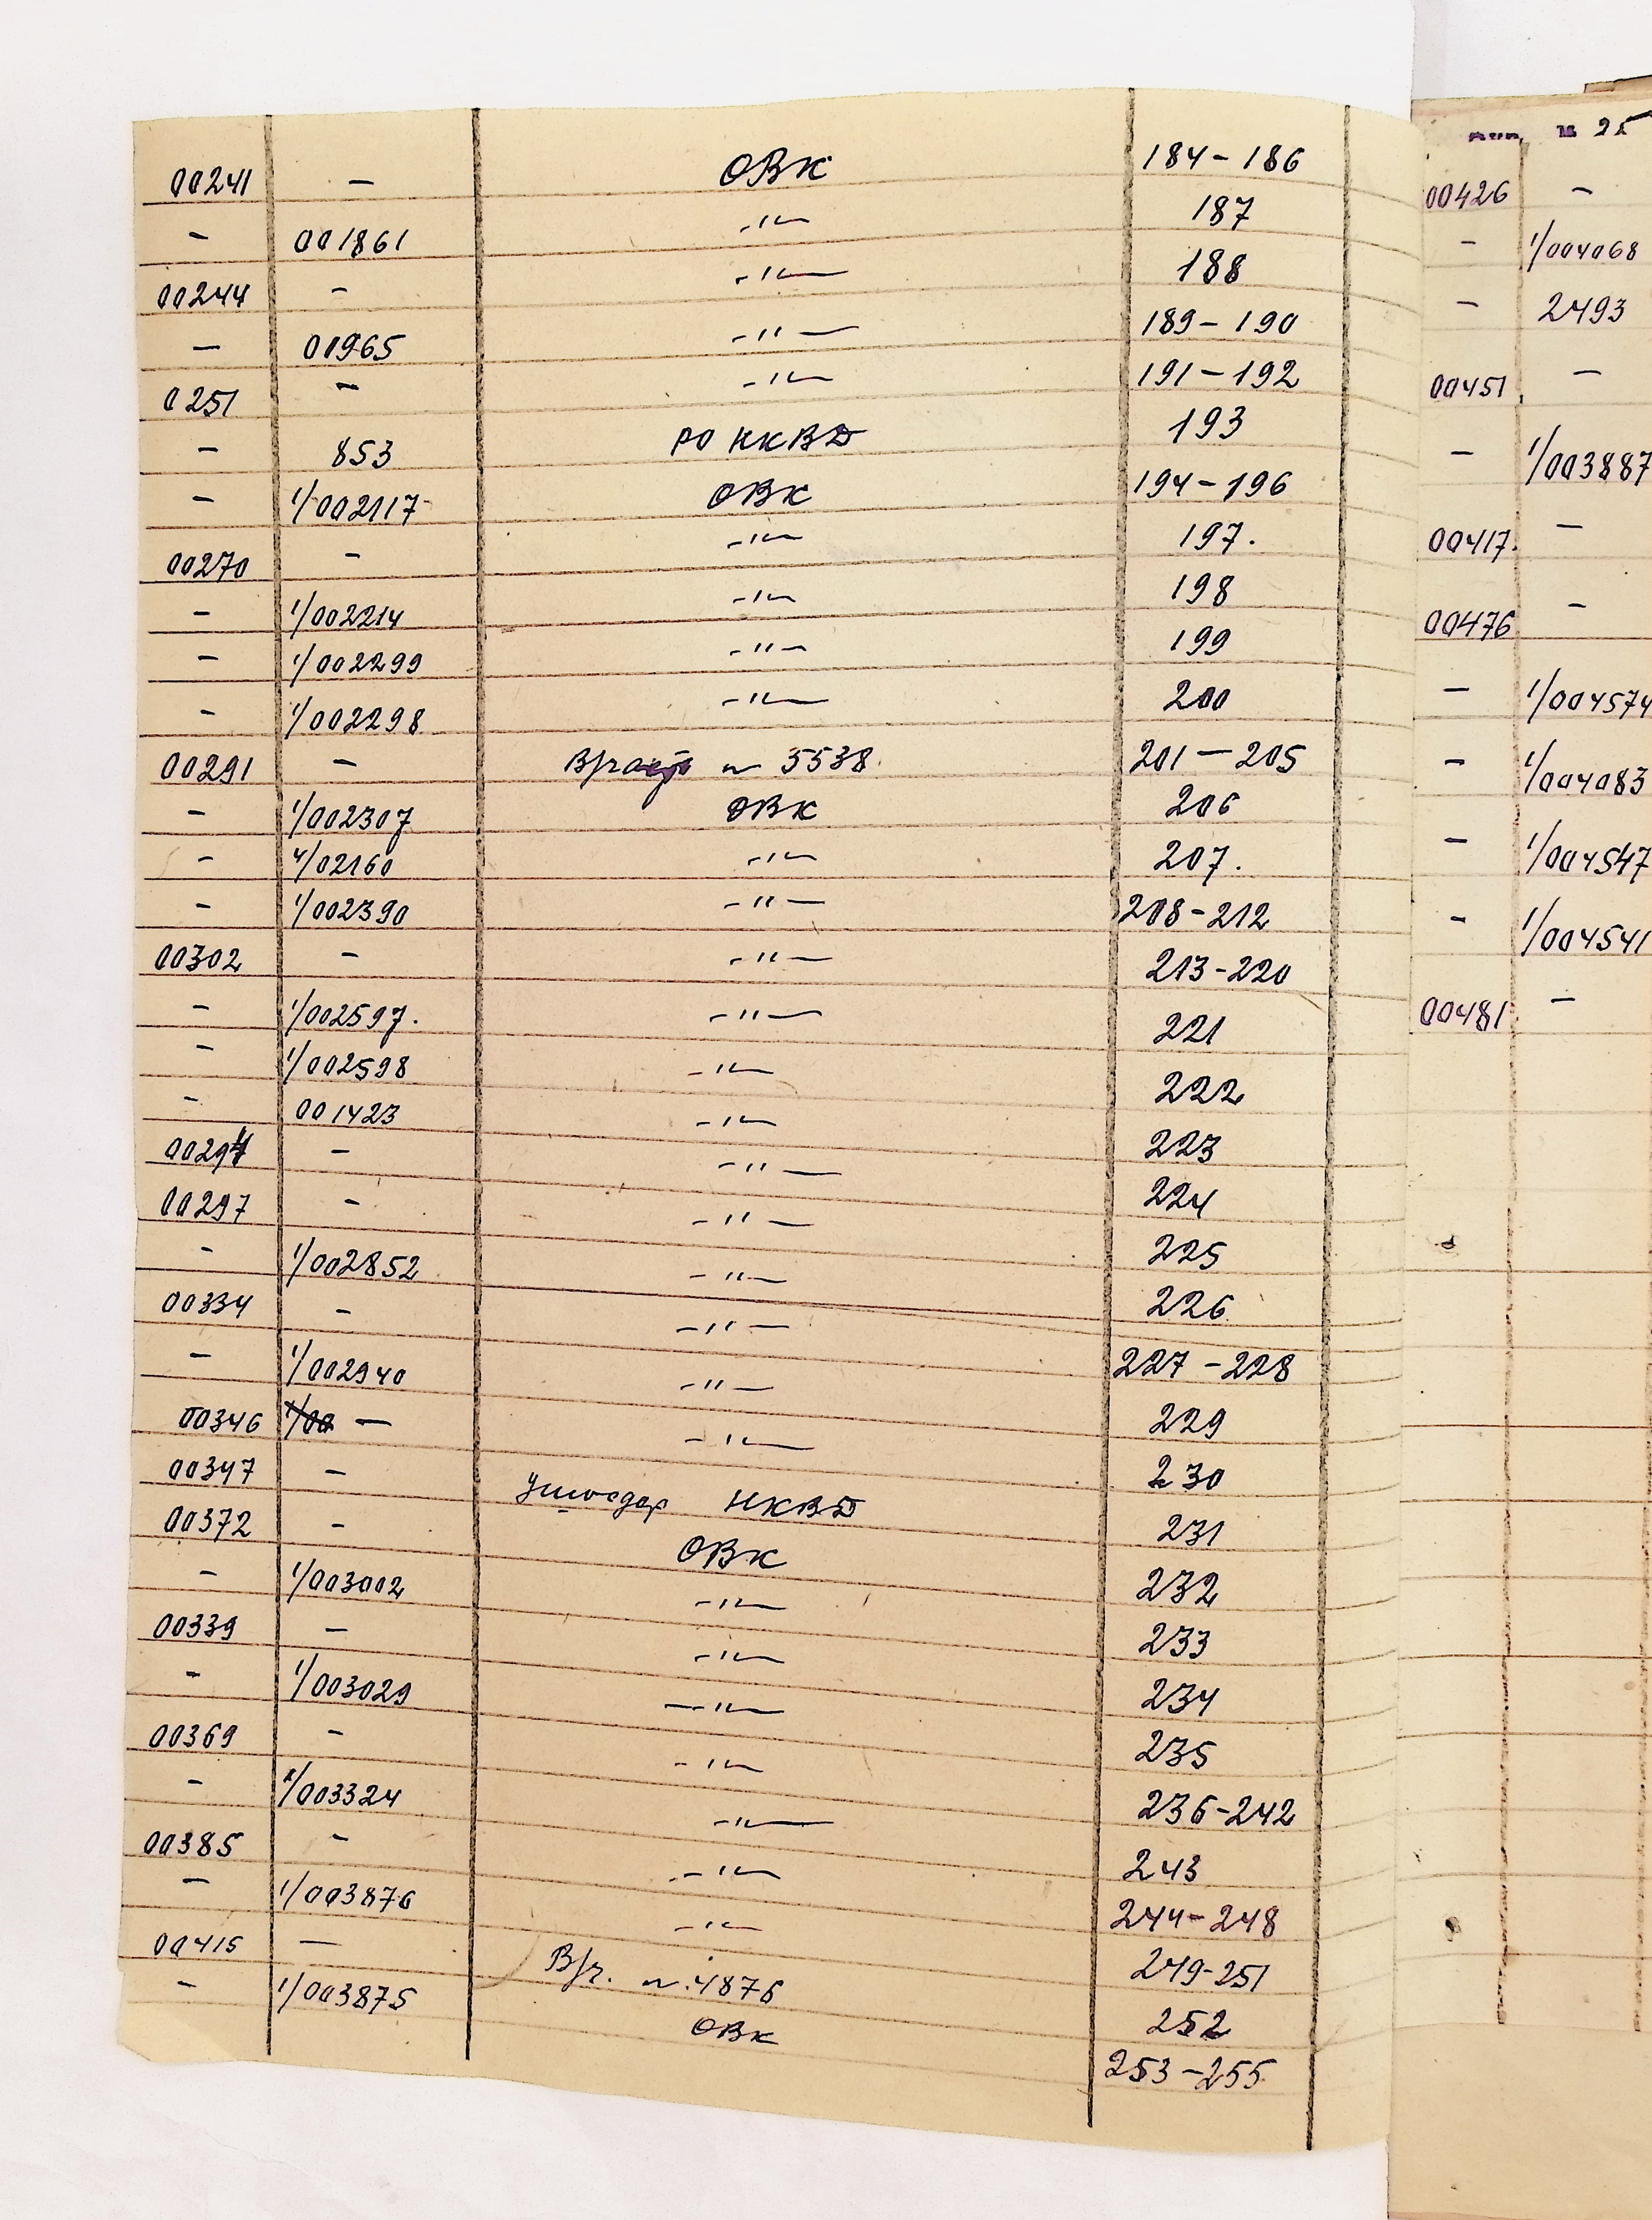 00241 – ОВК 184 – 186
– 001861 –"– 187
00244 – –"– 188
– 00965 –"– 189 – 190
0251 – –"– 191 – 192
– 853 РО НКВД 193
– 1/002117 ОВК 194 – 196
00270 – –"– 197.
– 1/002214 –"– 198
– 1/002299 –"– 199
– 1/002298 –"– 200
00291 – 5538 201 – 205
– 1/002307 ОВК 206
– 4/02160 –"– 207.
– 1/002390 –"– 208 - 212
00302 – –"– 213 - 220
– 1/002597. –"– 221
– 1/002598 –"– 222
– 001423 –"– 223
00294 – –"– 224
00297 – –"– 225
– 1/002852 –"– 226
00334 – –"– 227 – 228
– 1/002940 –"– 229
00346 1/00 – –"– 230
00347 – НКВД 231
00372 – ОВК 232
– 1/003002 –"– 233
00339 – –"– 234
– 1/003029 –"– 235
00369 – –"– 236-242
– 1/003324 –"– 243
00385 – –"– 244-248
– 1/003876 –"– 249-251
00415 – В/ч. 4876 252
– 1/003875 ОВК 253 – 255
25
00426 –
– 1/004068
– 2493
00451 –
– 1/003887
00417. –
00476 –
– 1/004574
– 1/004083
– 1/004547
– 1/004541
00481 –